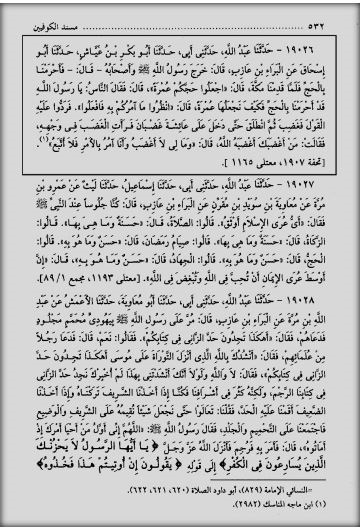 ٥٣٢ مسند الكوفيين
١٩٠٢٦ - حَدَّثَنَا عَبْدُ اللهِ، حَدَّثَنِي أَبِي، حَدَّثَنَا أَبُو بَكْرِ بْنُ عَيَّاشٍ، حَدَّثَنَا أَبُو
إِسْحَاقَ عَنِ الْبَرَاءِ بْنِ عَازِبٍ، قَالَ: خَرَجَ رَسُولُ اللهِ ﷺ وَأَصْحَابُهُ - قَالَ: - فَأَحْرَمْنَا
بِالْحَجِّ فَلَمَّا قَدِمْنَا مَكَّةَ، قَالَ: «اجْعَلُوا حَجَّكُمْ عُمْرَةً»، قَالَ: فَقَالَ النَّاسُ: يَا رَسُولَ اللهِ
قَدْ أَحْرَمْنَا بِالْحَجِّ فَكَيْفَ نَجْعَلُهَا عُمْرَةً، قَالَ: «انْظُرُوا مَا آمُرُكُمْ بِهِ فَافْعَلُوا». فَرَدُّوا عَلَيْهِ
الْقَوْلَ فَغَضِبَ ثُمَّ انْطَلَقَ حَتَّى دَخَلَ عَلَى عَائِشَةَ غَضْبَانَ فَرَأَتِ الْغَضَبَ فِي وَجْهِهِ،
فَقَالَتْ: مَنْ أَغْضَبَكَ أَغْضَبَهُ اللهُ، قَالَ: «وَمَا لِي لَا أَغْضَبُ وَأَنَا آمُرُ بِالْأَمْرِ فَلَا أُتَّبَعُ»(١).
[تحفة ١٩٠٧، معتلى ١١٦٥].
١٩٠٢٧ - حَدَّثَنَا عَبْدُ اللهِ، حَدَّثَنِي أَبِي، حَدَّثَنَا إِسْمَاعِيلُ، حَدَّثَنَا لَيْثٌ عَنْ عَمْرِو بْنِ
مُرَّةَ عَنْ مُعَاوِيَةَ بْنِ سُوَيْدِ بْنِ مُقَرِّنٍ عَنِ الْبَرَاءِ بْنِ عَازِبٍ، قَالَ: كُنَّا جُلُوسًا عِنْدَ النَّبِيِّ ﷺ
فَقَالَ: «أَيُّ عُرَى الْإِسْلَامِ أَوْثَقُ». قَالُوا: الصَّلَاةُ، قَالَ: «حَسَنَةٌ وَمَا هِيَ بِهَا». قَالُوا:
الزَّكَاةُ، قَالَ: «حَسَنَةٌ وَمَا هِيَ بِهَا». قَالُوا: صِيَامُ رَمَضَانَ، قَالَ: «حَسَنٌ وَمَا هُوَ بِهِ». قَالُوا:
الْحَجُّ، قَالَ: «حَسَنٌ وَمَا هُوَ بِهِ». قَالُوا: الْجِهَادُ، قَالَ: «حَسَنٌ وَمَا هُوَ بِهِ»، قَالَ: «إِنَّ
أَوْسَطَ عُرَى الْإِيمَانِ أَنْ تُحِبَّ فِي اللهِ وَتُبْغِضَ فِي اللهِ». [معتلى ١١٩٣، مجمع ٨٩/١].
١٩٠٢٨ - حَدَّثَنَا عَبْدُ اللهِ، حَدَّثَنِي أَبِي، حَدَّثَنَا أَبُو مُعَاوِيَةَ، حَدَّثَنَا الْأَعْمَشُ عَنْ عَبْدِ
اللهِ بْنِ مُرَّةَ عَنِ الْبَرَاءِ بْنِ عَازِبٍ، قَالَ: مُرَّ عَلَى رَسُولِ اللهِ ﷺ بِيَهُودِيٍّ مُحَمَّمٍ مَجْلُودٍ
فَدَعَاهُمْ، فَقَالَ: «أَهَكَذَا تَجِدُونَ حَدَّ الزَّانِي فِي كِتَابِكُمْ». فَقَالُوا: نَعَمْ، قَالَ: فَدَعَا رَجُلًا
مِنْ عُلَمَائِهِمْ، فَقَالَ: «أَنْشُدُكَ بِاللهِ الَّذِي أَنْزَلَ التَّوْرَاةَ عَلَى مُوسَى أَهَكَذَا تَجِدُونَ حَدَّ
الزَّانِي فِي كِتَابِكُمْ»، فَقَالَ: لَا وَاللهِ وَلَوْلَا أَنَّكَ أَنْشَدْتَنِي بِهَذَا لَمْ أُخْبِرْكَ نَجِدُ حَدَّ الزَّانِي
فِي كِتَابِنَا الرَّجْمَ، وَلَكِنَّهُ كَثُرَ فِي أَشْرَافِنَا فَكُنَّا إِذَا أَخَذْنَا الشَّرِيفَ تَرَكْنَاهُ وَإِذَا أَخَذْنَا
الضَّعِيفَ أَقَمْنَا عَلَيْهِ الْحَدَّ، فَقُلْنَا: تَعَالَوْا حَتَّى نَجْعَلَ شَيْئًا نُقِيمُهُ عَلَى الشَّرِيفِ وَالْوَضِيعِ
فَاجْتَمَعْنَا عَلَى التَّحْمِيمِ وَالْجَلْدِ، فَقَالَ رَسُولُ اللهِ ﷺ: «اللَّهُمَّ إِنِّي أَوَّلُ مَنْ أَحْيَا أَمْرَكَ إِذْ
أَمَاتُوهُ»، قَالَ: فَأَمَرَ بِهِ فَرُجِمَ فَأَنْزَلَ اللهُ عَزَّ وَجَلَّ ﴿يَا أَيُّهَا الرَّسُولُ لَا يَحْزُنْكَ
الَّذِينَ يُسَارِعُونَ فِي الْكُفْرِ﴾ إِلَى قَوْلِهِ ﴿يَقُولُونَ إِنْ أُوتِيتُمْ هَذَا فَخُذُوهُ﴾
=النسائي الإمامة (٨٢٩)، أبو داود الصلاة (٦٢٠، ٦٢١، ٦٢٢).
(١) ابن ماجه المناسك (٢٩٨٢).